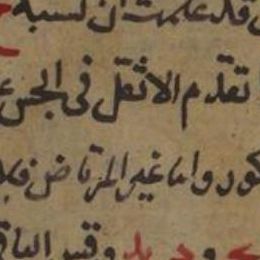 قد علمت ان نسبة
تقدم الاثقل فى الجس
كور واما غير المرتاض فلا
وقس الباقى